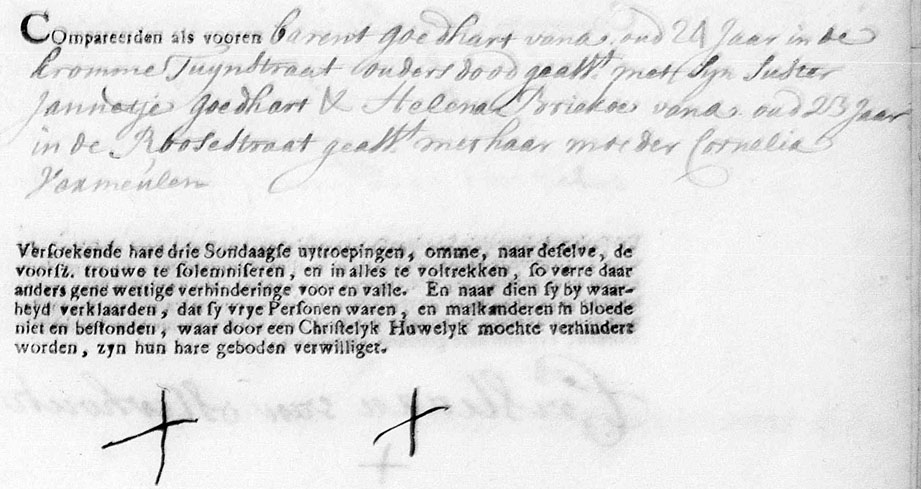 Compareerden als vooren Barent goedhart van a. oud 24 Jaar in de
kromme Tuynstraat ouders dood geasst. met syn suster
Jannetje goedhart & Helena Briekoe van a. oud 23 Jaar
in de Roosestraat geasst. met haar moeder Cornelia
Vermeulen
Versoekende hare drie Sondaagse uytroepingen, omme, naar deselve, de
voorsz. trouwe te solemniseren, en in alles te voltrekken, so verre daar
anders gene wettige verhinderinge voor en valle. En naar dien sy by waar-
heyd verklaarden, dat sy vrye Personen waren, en malkanderen in bloede
niet en bestonden, waar door een Christelyk Huwelyk mochte verhindert
worden, zyn hun hare geboden verwilliget.